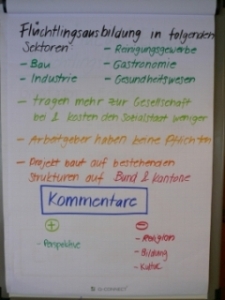 Flüchtlingsausbildung in folgenden
Sektoren
- Reinigungsgewerbe
- Bau
- Gastronomie
- Industrie
- Gesundheitswesen
- tragen mehr zur Gesellschaft
bei & kosten den Sozialstaat weniger
- Arbeitgeber haben keine Pflichten
- Projekt baut auf bestehenden
Strukturen auf Bund & Kantone
Kommentare
+
-
- Perspektive
- Religion
- Bildung
- Kultur